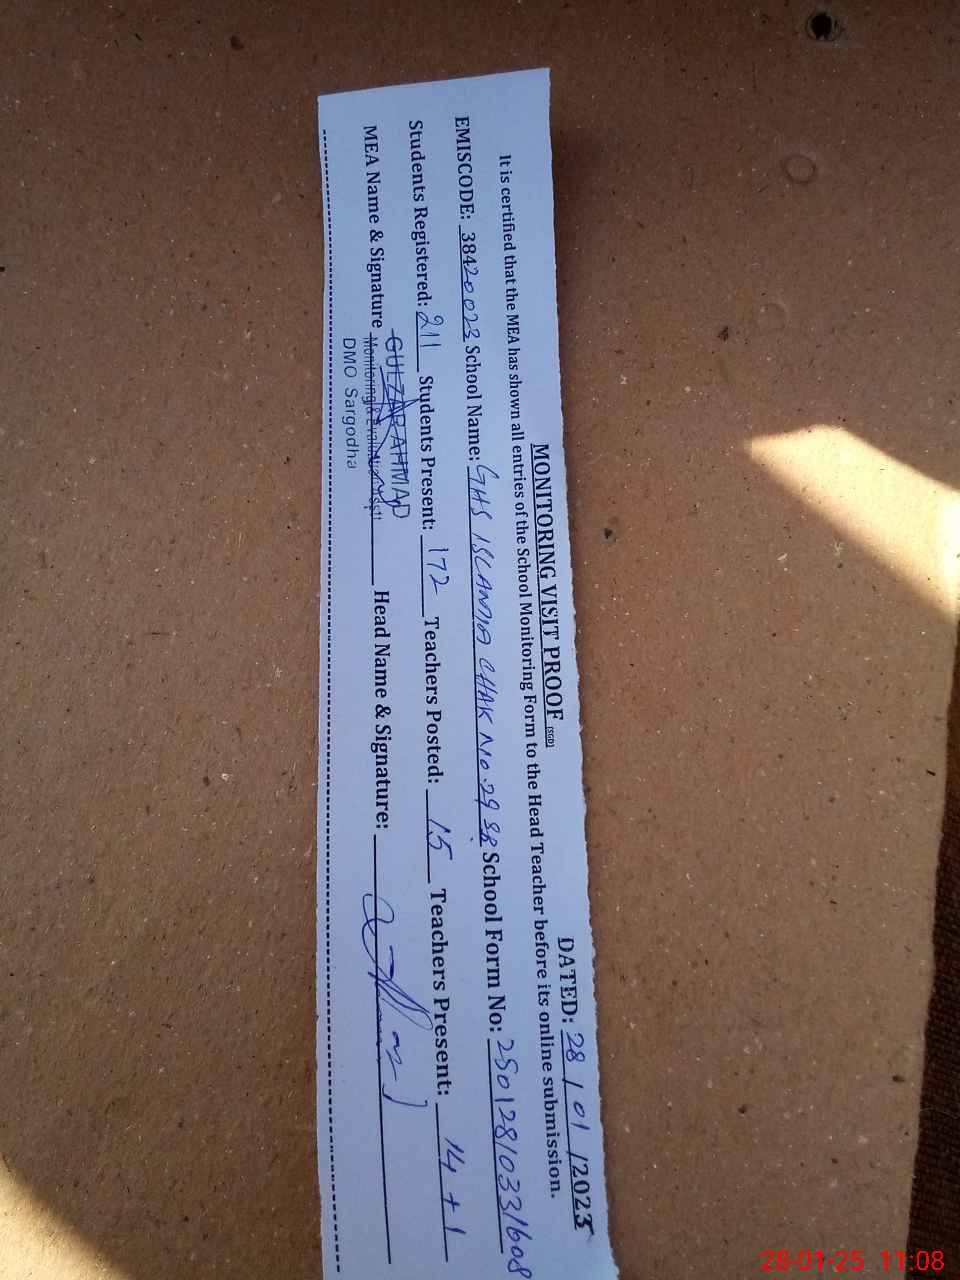 MONITORING VISIT PROOF (SGD)
DATED: 28 / 01 / 2025
It is certified that the MEA has shown all entries of the School Monitoring Form to the Head Teacher before its online submission.
EMISCODE: 38420023 School Name: GHS ISLAMIA CHAK NO.29 SB School Form No: 25012810331608
Students Registered: 211 Students Present: 172 Teachers Posted: 15 Teachers Present: 14 + 1
MEA Name & Signature GULZAR AHMAD Head Name & Signature:
Monitoring & Evaluation Asstt
DMO Sargodha
28-01-25 11:08